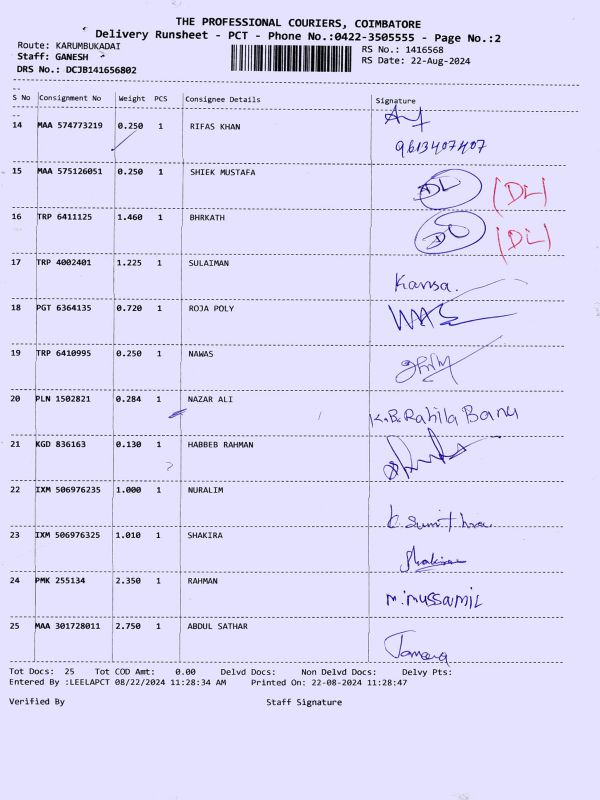 THE PROFESSIONAL COURIERS, COIMBATORE
Delivery Runsheet - PCT - Phone No.:0422-3505555 - Page No.:2
Route: KARUMBUKADAI RS No.: 1416568
Staff: GANESH RS Date: 22-Aug-2024
DRS No.: DCJB141656802
S No Consignment No Weight PCS Consignee Details Signature
14 MAA 574773219 0.250 1 RIFAS KHAN
9613407407
15 MAA 575126051 0.250 1 SHIEK MUSTAFA DL (DL)
16 TRP 6411125 1.460 1 BHRKATH DL (DL)
17 TRP 4002401 1.225 1 SULAIMAN
Kansa.
18 PGT 6364135 0.720 1 ROJA POLY
19 TRP 6410995 0.250 1 NAWAS
20 PLN 1502821 0.284 1 NAZAR ALI
K.B.Rahila Banu
21 KGD 836163 0.130 1 HABBEB RAHMAN
?
22 IXM 506976235 1.000 1 NURALIM
K Sumithra
23 IXM 506976325 1.010 1 SHAKIRA
Shakira
24 PMK 255134 2.350 1 RAHMAN
M.MUSSAMIL
25 MAA 301728011 2.750 1 ABDUL SATHAR
Tot Docs: 25 Tot COD Amt: 0.00 Delvd Docs: Non Delvd Docs: Delvy Pts:
Entered By :LEELAPCT 08/22/2024 11:28:34 AM Printed On: 22-08-2024 11:28:47
Verified By Staff Signature